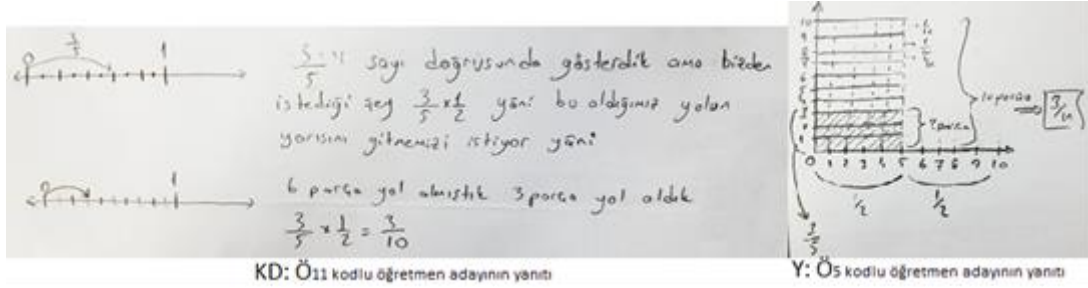 0 3/5 1
3/5 'i sayı doğrusunda gösterdik ama bizden
istediği şey 3/5 x 1/2 yani bu aldığımız yolun
yarısını gitmemizi istiyor yani
0 1
6 parça yol almıştık 3 parça yol aldık
3/5 x 1/2 = 3/10
KD: Ö11 kodlu öğretmen adayının yanıtı
10
9
0 1 2 3 4 5 6 7 8 9 10
1/2 1/2
3/5
Y: Ö5 kodlu öğretmen adayının yanıtı